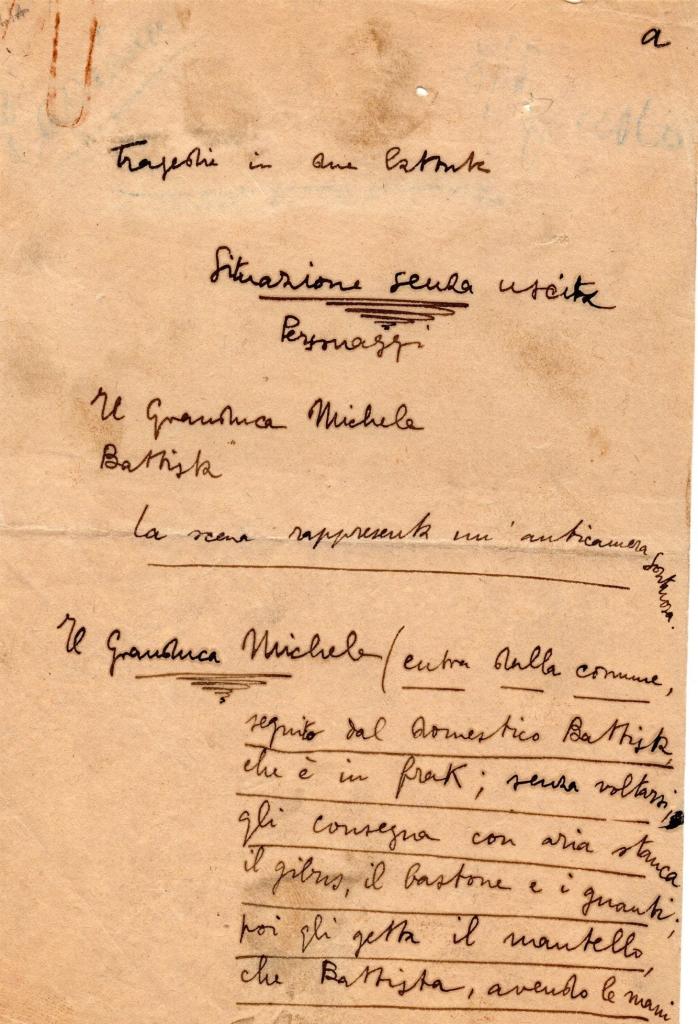 a
Tragedie in due battute
Situazione senza uscita
Personaggi
Il Granduca Michele
Battista
La scena rappresenta un'anticamera sontuosa.
Il Granduca Michele (entra dalla comune,
seguito dal domestico Battista,
che è in frak; senza voltarsi,
gli consegna con aria stanca
il gibus, il bastone e i guanti;
poi gli getta il mantello,
che Battista, avendo le mani